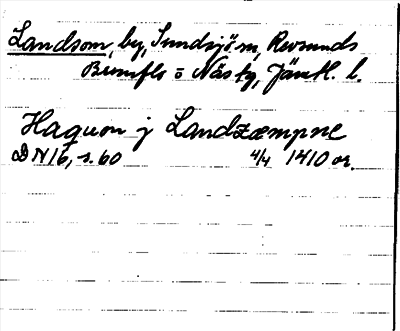 Landsom, by, Sundsjö sn, Revsunds
Brunflo o Näs tg, Jämtl. l.
Haquon j Landzæmpne
DN 16, s. 60 4/4 1410 or.